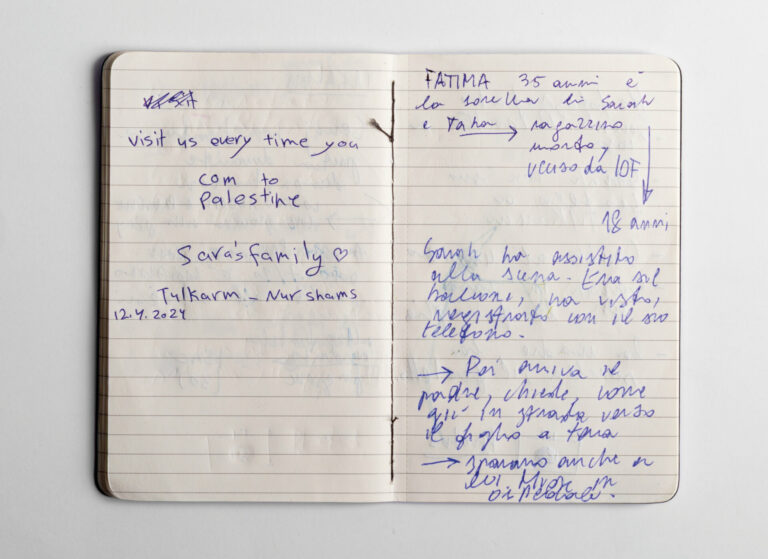 visit us every time you
com to
palestine
Sara's family ♡
Tulkarm - Nur shams
12.4.2024
FATIMA 35 anni è
la sorella di Sarah
e Taha → ragazzino
morto,
ucciso da IDF
18 anni
Sarah ha assistito
alla scena. Era sul
balcone, ha visto,
registrato con il suo
telefono.
→ Poi arriva il
padre, chiede, corre
giù in strada verso
il figlio a terra
→ sparano anche a
lui. Muore in